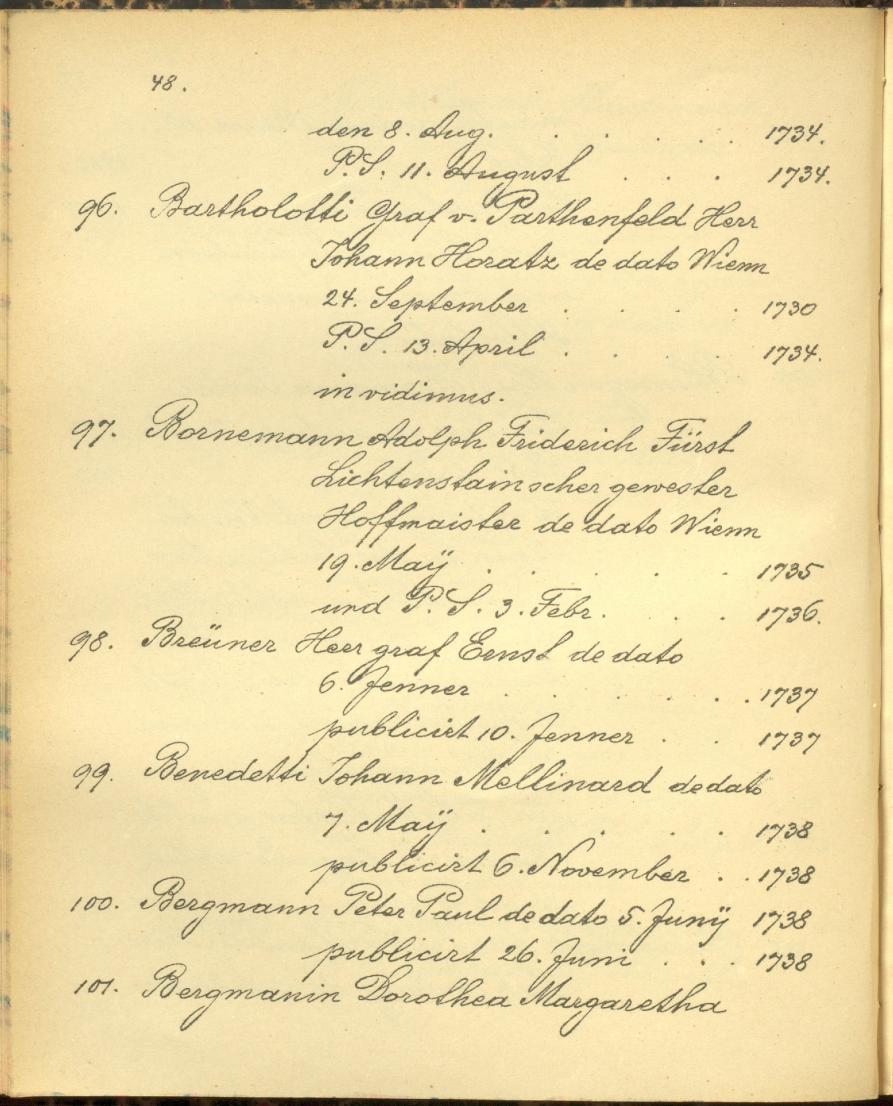 48.
den 8. Aug. . . . . . 1734.
P. S. 11. August . . . 1734.
96. Bartholotti Graf v. Parthenfeld Herr
Johann Horatz de dato Wienn
24. September . . . . 1730
P. S. 13. April . . . . 1734.
in vidimus.
97. Bornemann Adolph Friderich Fürst
Lichtenstainscher gewester
Hoffmaister de dato Wienn
19. Maÿ . . . . . 1735
und P. S. 3. Febr. . . . 1736.
98. Breüner Herr graf Ernst de dato
6. Jenner . . . . . . 1737
publicirt 10. Jenner . . 1737
99. Benedetti Johann Mellinard de dato
7. Maÿ . . . . . 1738
publicirt 6. November . . 1738
100. Bergmann Peter Paul de dato 5. Junÿ 1738
publicirt 26. Juni . . . 1738
101. Bergmanin Dorothea Margaretha